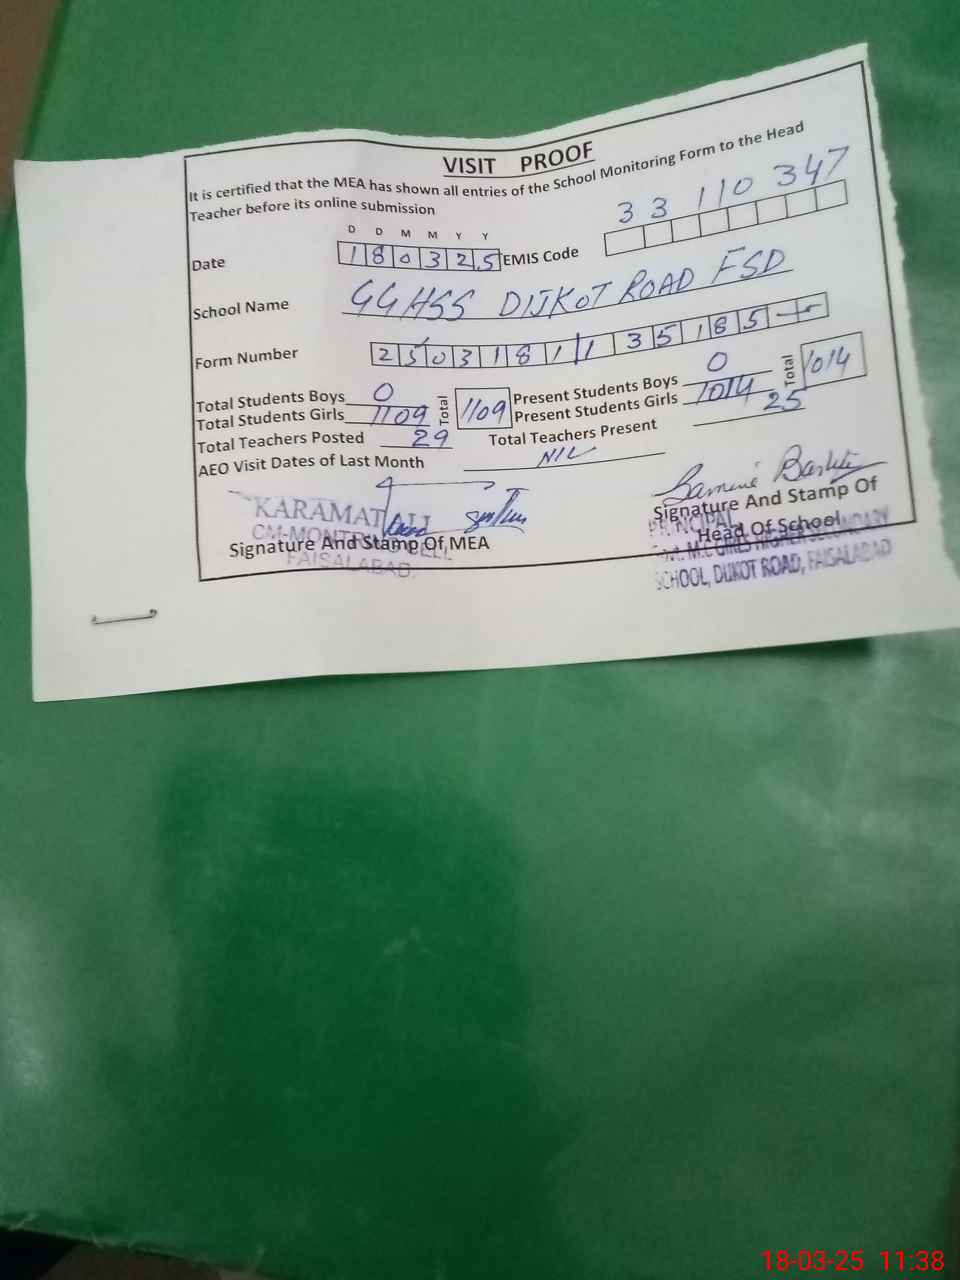 VISIT PROOF
It is certified that the MEA has shown all entries of the School Monitoring Form to the Head
Teacher before its online submission
D D M M Y Y
Date 180325 EMIS Code 33110347
School Name GGHSS DIJKOT ROAD FSD
Form Number 2503181135185
Total Students Boys 0 Present Students Boys 0
Total Students Girls 1109 Total 1109 Present Students Girls 1014 Total 1014
Total Teachers Posted 29 Total Teachers Present 25
AEO Visit Dates of Last Month NIL
KARAMAT ALI
Signature And Stamp Of MEA
FAISALABAD.
Signature And Stamp Of
Head Of School
PRINCIPAL
M.C GIRLS HIGHER SECONDARY
SCHOOL, DIJKOT ROAD, FAISALABAD
18-03-25 11:38